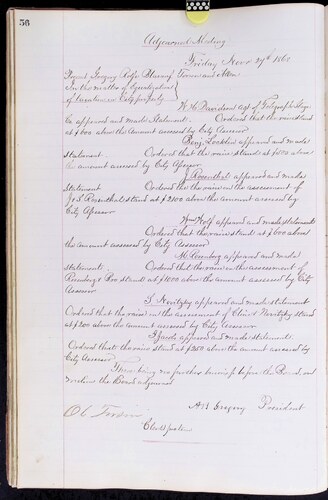 56
Adjourned Meeting
Friday Novr 19th 186
Present Gregory Rolfe Blaney Towne and
In the matter of Equalization
of Certain City property
W. H. Davidson agt of Telegraph
Co appeared and made Statement. Ordered that the raise stand
at $ 600 above the Amount assessed by City Assessor
Benj. Locklin appeared and made
Statement Ordered that the raise stands at $ above
the amount assessed by City Assessor
J. Rosenthal appeared and made
Statement Ordered that the raise in the assessment of
J & S Rosenthal stand at $ 2500 above the amount assessed by
City Assessor
Wm Wolf appeared and made statements
Ordered that the raise stand at $ 600 above
the amount assessed by City Assessor
M. appeared and made
statements. Ordered that the raise in the assessment of
& Bro stand at $ 1000 above the amount assessed by City
Assessor
S. appeared and made statement
Ordered that the raise in the assessment of & stand
at $ 200 above the amount assessed by City Assessor.
Jacobs appeared and made statements.
Ordered that the raise stand at $ 250 above the amount assessed by
City Assessor
There being no further business before the Board, on
motion the Board adjourned
A H Gregory President